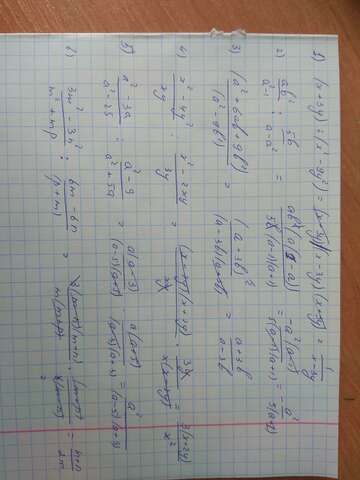 1) (x+3y) : (x²-9y²) = (x+3y) / (x+3y)(x-3y) = 1 / x-3y
2) ab² / a²-1 : 5b / a-a² = ab² (a(1-a)) / 5b (a-1)(a+1) = -a²(a-1) / 5(a-1)(a+1) = - a² / 5(a+1)
3) (a²+6ab+9b²) / (a²-9b²) = (a+3b)² / (a-3b)(a+3b) = a+3b / a-3b
4) x²-4y² / xy : x²-2xy / 3y = (x-2y)(x+2y) / xy · 3y / x(x-2y) = 3(x+2y) / x²
5) a²-3a / a²-25 : a²-9 / a²+5a = a(a-3) / (a-5)(a+5) · a(a+5) / (a-3)(a+3) = a² / (a-5)(a+3)
6) 3m²-3n² / m²+mp : 6m-6n / (p+m) =